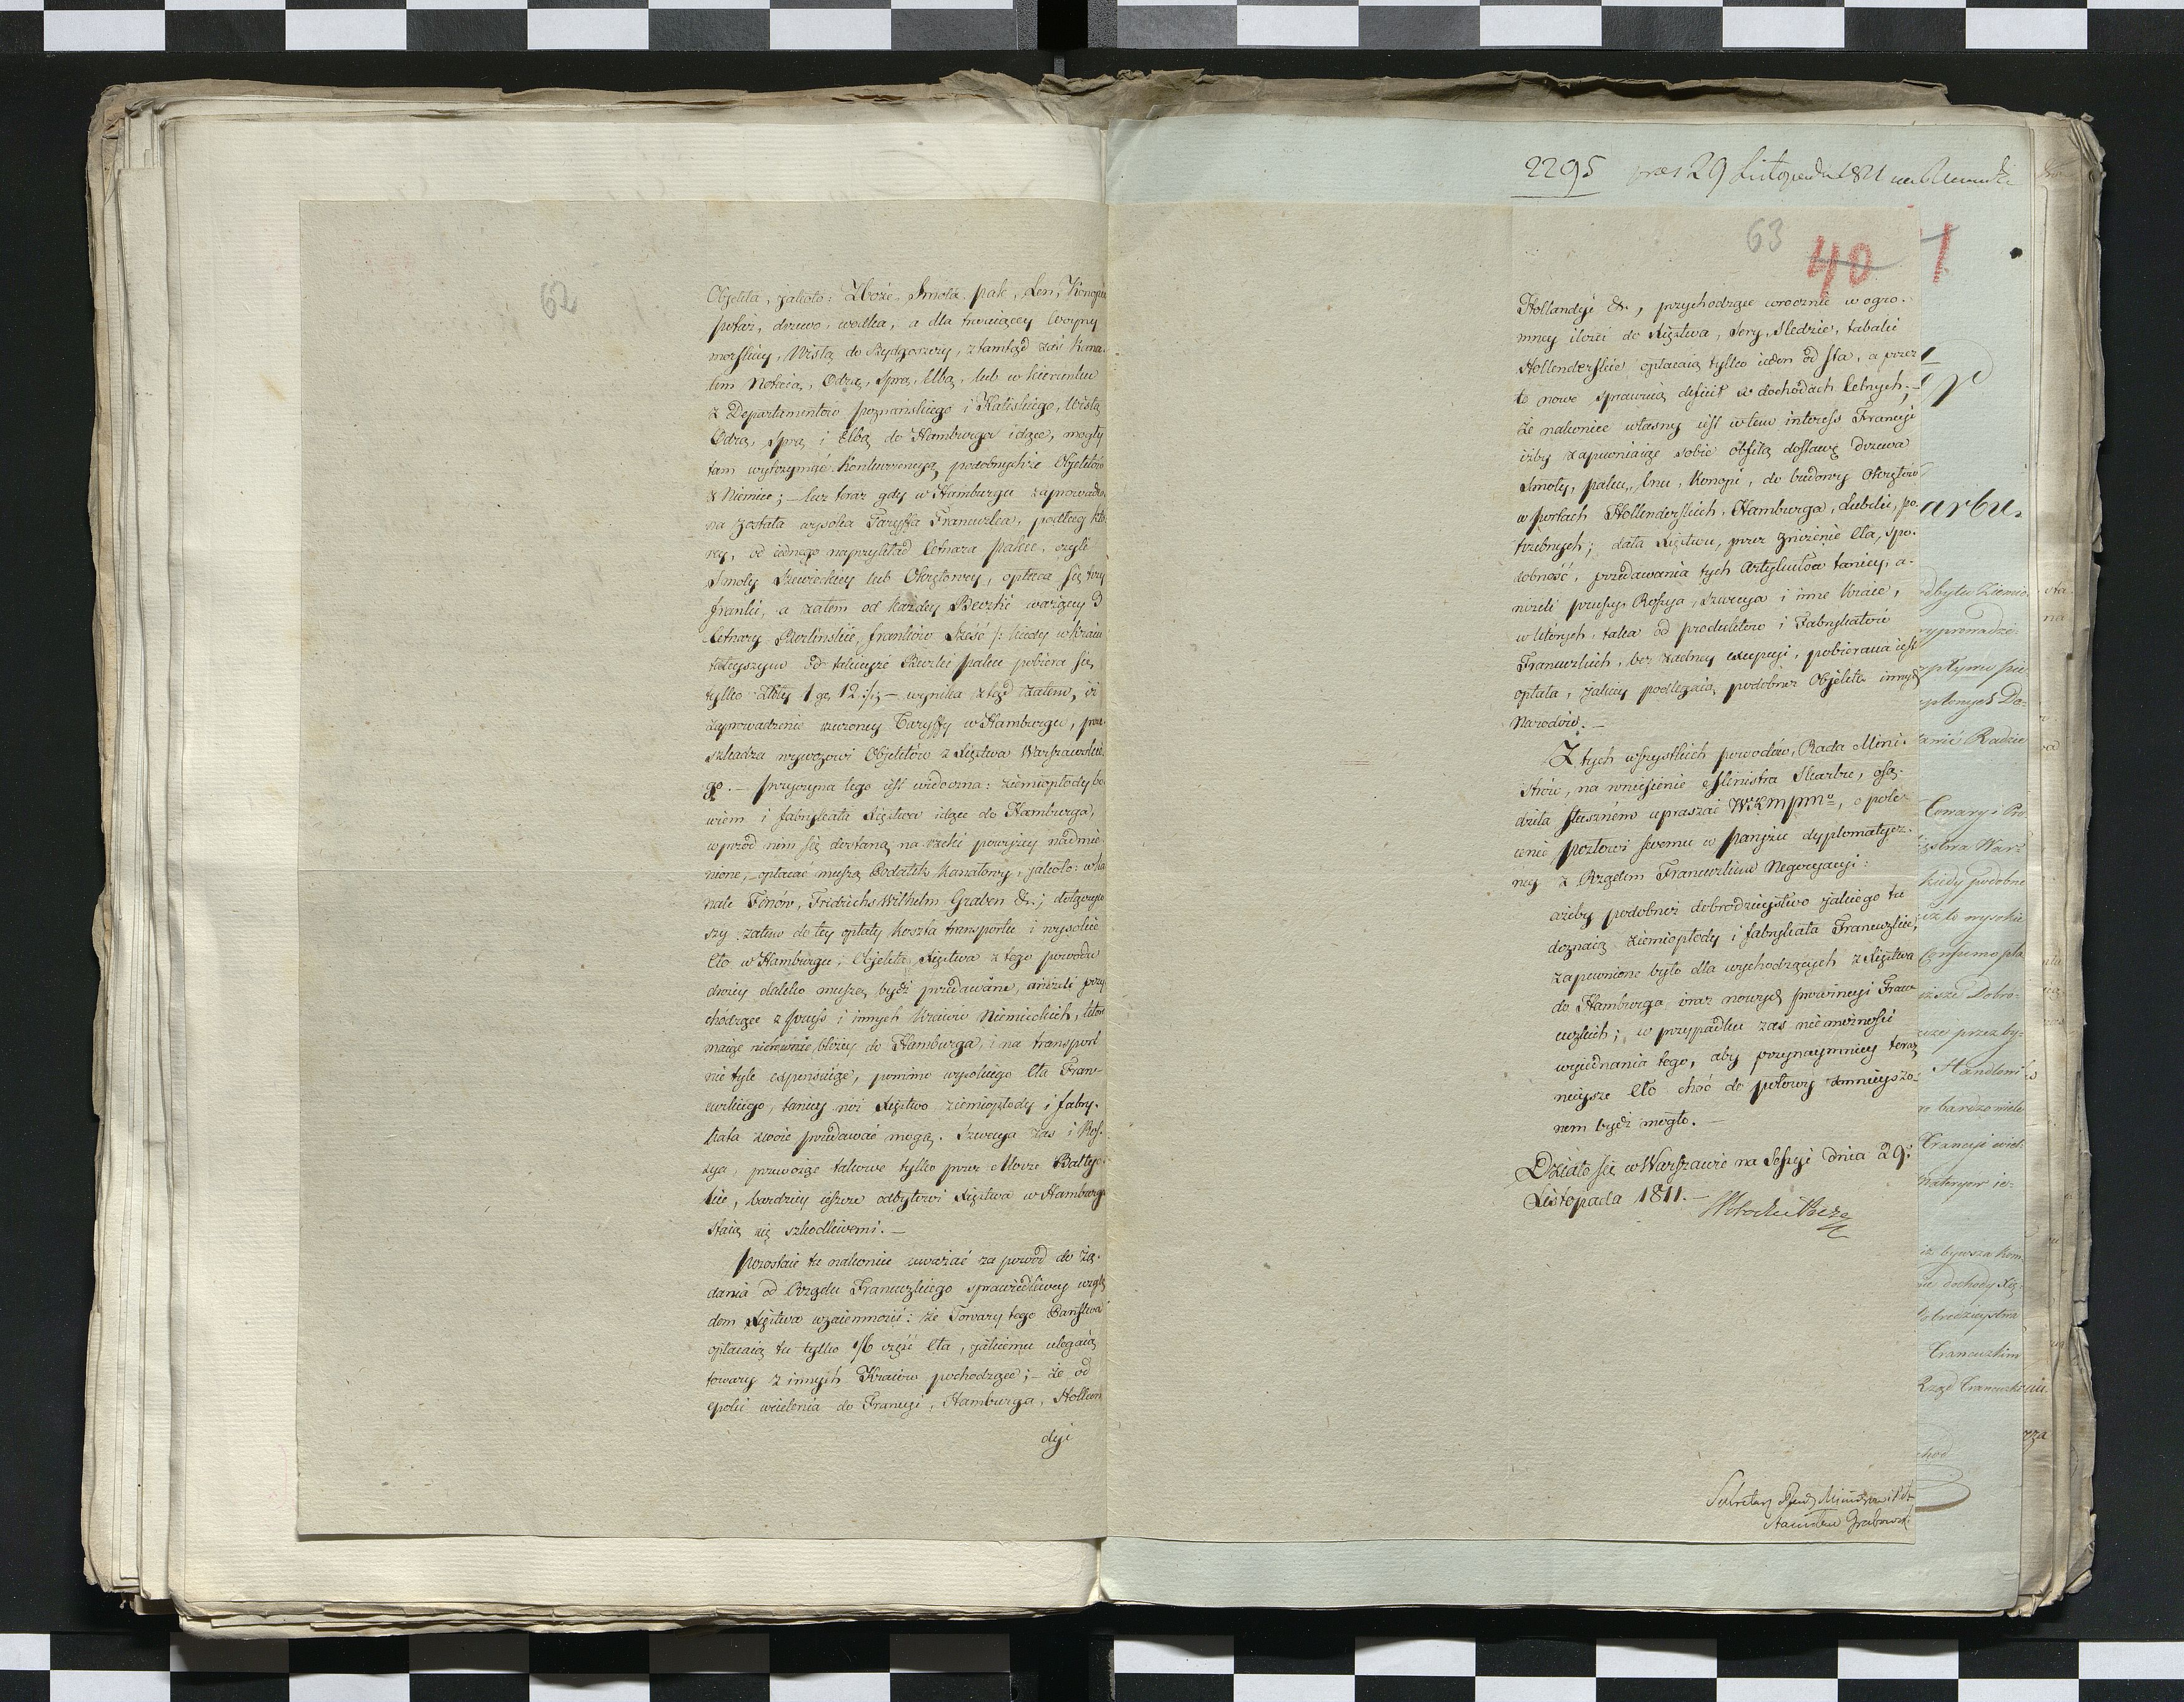 62
Objekta, jakoto: Zboże, Smoła, pak, Len, Konopie
potaż, drzewo, wódka, a dla trwaiącey woyny
morskiey, Wisłą do Bydgoszczy, ztamtąd zaś Kana-
łem Notecią, Odrą, Sprą, Elbą, lub w kierunku
z Departamentów poznańskiego i Kaliskiego, Wartą
Odrą, Sprą i Elbą do Hamburga idące, mogły
tam wytrzymać Konkurrencyą podobnychże Objektów
z Niemiec; – lecz teraz gdy w Hamburgu zaprowadzo-
na została wysoka Taryffa Francuzka, podług któ-
rey, od iednego naprzykład Cetnara paku, czyli
Smoły Szewieckiey lub Okrętowey, opłaca się trzy
franki, a zatem od każdey Beczki ważącey 3
Cetnary Berlińskie, franków Sześć /: kiedy w kraiu
tuteyszym od takieyże Beczki paku pobiera się
tylko Złoty 1 gr 12 :/; – wynika ztąd zatem, iż
zaprowadzenie rzeczoney Taryffy w Hamburgu, prze-
szkadza wywozowi Objektów z Xięstwa Warszawskie-
go. – przyczyna tego iest widoczna: ziemiopłody bo-
wiem i fabrykata Xięstwa idące do Hamburga,
wprzód nim się dostaną na rzeki powyżey nadmie-
nione, – opłacać muszą Podatek kanałowy, jakoto: w ka-
nale Finów, Fridrichs Wilhelm Graben &c.; dołączyw-
szy zatem do tey opłaty koszta transportu i wysokie
Cło w Hamburgu; Objekta Xięstwa z tego powodu
drożey daleko muszą bydź przedawane, aniżeli przy-
chodzące z pruss i innych kraiów Niemieckich, które
maiąc nierównie bliżey do Hamburga, i na transport
nie tyle expensuiąc, pomimo wysokiego Cła Fran-
cuzkiego, taniey niż Xięstwo ziemiopłody i fabry-
kata swoie przedawać mogą. Szwecya zaś i Ros-
sya, przewożąc takowe tylko przez Morze Baltyc-
kie, bardziey ieszcze odbytowi Xięstwa w Hamburgu
staią się szkodliwemi. –
Pozostaie tu nakoniec uważać za powód do żą-
dania od Rządu Francuzkiego sprawiedliwey wzglę-
dem Xięstwa wzaiemności: że Towary tego Państwa
opłacaią tu tylko 1/6 część Cła, jakiemu ulegaią
towary z innych Kraiów pochodzące; – że od
epoki wcielenia do Francyi, Hamburga, Hollan-
dyi
2295 29 Listopada 1811
63 40
Hollandyi &c., przychodzące corocznie w ogro-
mney ilości do Xięstwa, Sery, Sledzie, tabaki
Hollenderskie, opłacaią tylko ieden od sta, a przez
to nowe sprawuią deficit w dochodach Celnych; –
że nakoniec własny iest w tem interess Francyi
iżby zapewniaiąc sobie obfitą dostawę drzewa
Smoły, paku, lnu, Konopi, do budowy Okrętów
w portach Hollenderskich, Hamburga, Lubeki, po-
trzebnych; dała Xięstwu, przez zniżenie Cła, spo-
dobność, przedawania tych Artykułów taniey, a-
niżeli prussy, Rossya, Szwecya i inne kraie,
w których, taka od produktów i Fabrykatów
Francuzkich, bez żadney excepcyi, pobierana iest
opłata, jakiey podlegaią podobneż Objekta innych
Narodów. –
Z tych wszystkich powodów, Rada Mini-
strów, na wniesienie Ministra Skarbu, osą-
dziła słusznem upraszać WKMPMo, o pole-
cenie posłowi swemu w Paryżu dyplomatycz-
ney z Rządem Francuzkim Negocyacyi:
ażeby podobneż dobrodzieystwo jakiego tu
doznaią ziemiopłody i fabrykata Francuzkie,
zapewnione było dla wychodzących z Xięstwa
do Hamburga oraz nowych prowincyi Fran-
cuzkich; w przypadku zaś niemożności
wyiednania tego, aby przynaymniey teraz-
nieysze Cło choć do połowy zmnieyszo-
nem bydź mogło. –
Działo się w Warszawie na Sessyi dnia 29.
Listopada 1811. –
Sekretarz Rady Ministrów
Stanisław Grabowski
arbu.
odbytu Ziemio-
yprowadze-
Radzie
Towary i Pro-
kiedy podobne
iż to wysokie
ższe Dobro-
przez by-
Handlowi
bardzo wiele
Francyi
iż bywsza Kom-
dochody Xię-
obrodzieystwa
Francuzkim
Rząd Francuzki